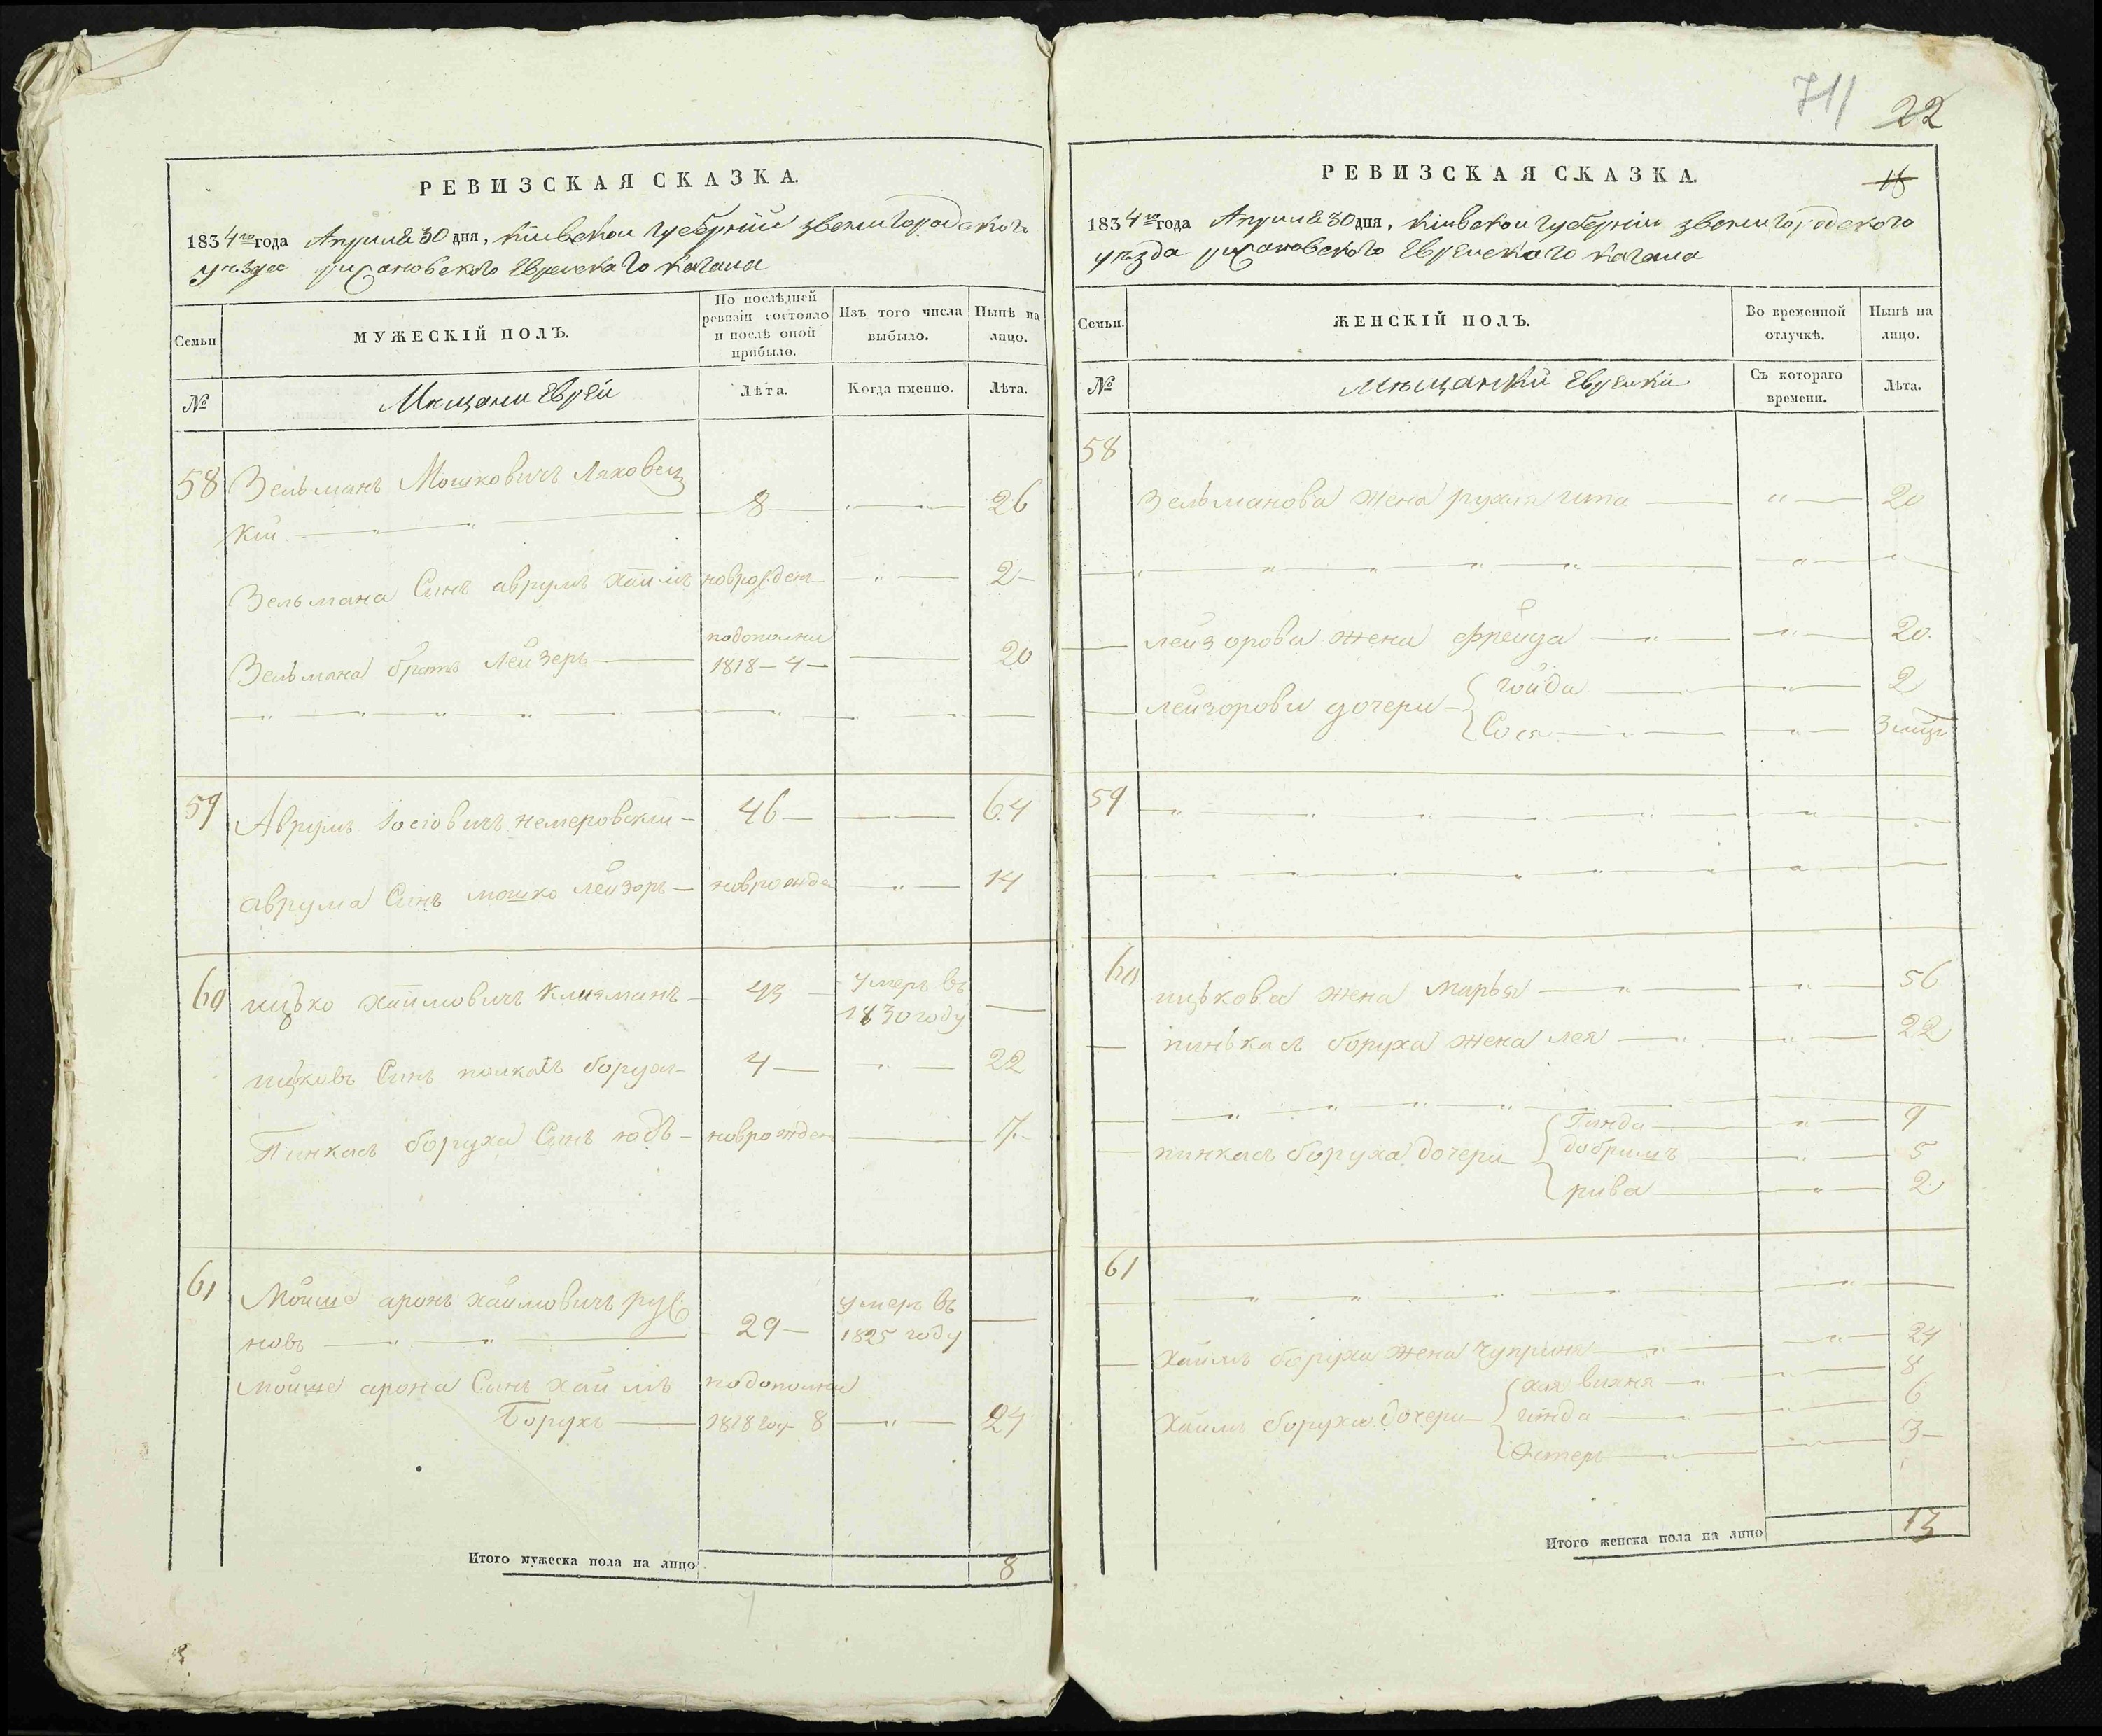 711 22
РЕВИЗСКАЯ СКАЗКА.
1834го года Апреля 30 дня, Кіевской губерніи звенигородского
уезда рижановского Еврейскаго кагала
Семьи.
МУЖЕСКІЙ ПОЛЪ.
По послѣдней ревизіи состояло и послѣ оной прибыло.
Изъ того числа выбыло.
Нынѣ на лицо.
№
Мещани Еврей
Лѣта.
Когда именно.
Лѣта.
58 Зельманъ Мошковичъ Ляховец
кій — " — " — 8 — " — 26
Зельмана Синъ аврумъ хаимъ новрожден — " — 2 —
подополни
Зельмана братъ Лейзеръ — 1818 — 4 — — 20
59 Аврумъ Іосіовичъ немеровскии — 46 — — 64
аврума Синъ мошко лейзоръ — новрожде — " — 14
60 ицько хаимовичъ Клигманъ — 43 — умеръ въ
1830 году —
ицковъ Синъ пинкасъ борухъ — 4 — " — 22
Пинкасъ боруха Синъ юдъ — новрожден — 7 —
61 Мойше аронъ хаимовичъ
новъ — " — " — 29 — умеръ въ
1825 году —
Мойше арона Синъ хаимъ подополни
Борухъ — 1818 году 8 — " — 24
Итого мужеска пола на лицо 8
РЕВИЗСКАЯ СКАЗКА.
18
1834го года Апреля 30 дня, Кіевской губерніи звенигородского
уезда рижановского Еврейскаго кагала
Семьи.
ЖЕНСКІЙ ПОЛЪ.
Во временной отлучкѣ.
Нынѣ на лицо.
№
Мещанки Еврейки
Съ котораго времени.
Лѣта.
58
Зельманова жена рухля гита — " — 20
лейзорова жена фрейда — " — " — 20
лейзорови дочери — гойда — " — 2
Сося — " — " — 3 мцы
59
60
ицькова жена марья — " — " — 56
пинькасъ боруха жена лея — " — " — 22
Гинда — " — 9
пинкасъ боруха дочери добришъ — " — 5
рива — " — 2
61
хаимъ боруха жена чуприна — " — " — 24
хая — " — 8
хаимъ боруха дочери — гинда — " — 6
Эстеръ — " — 3 —
Итого женска пола на лицо 13